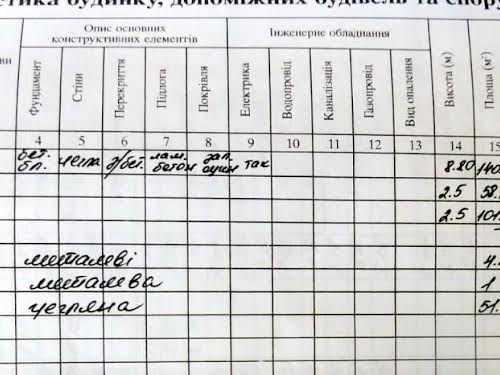 стика будинку, допоміжних будівель та спору
Опис основних конструктивних елементів
Інженерне обладнання
ви
Фундамент Стіни Перекриття Підлога Покрівля Електрика Водопровід Каналізація Газопровід Вид опалення Висота (м) Площа (м²
4 5 6 7 8 9 10 11 12 13 14 15
бет. лам.
бл. цегла з/бет. бетон оцин так 8.20 140
2.5 58.
2.5 101.
металеві 4.
металева 1
цегляна 51.